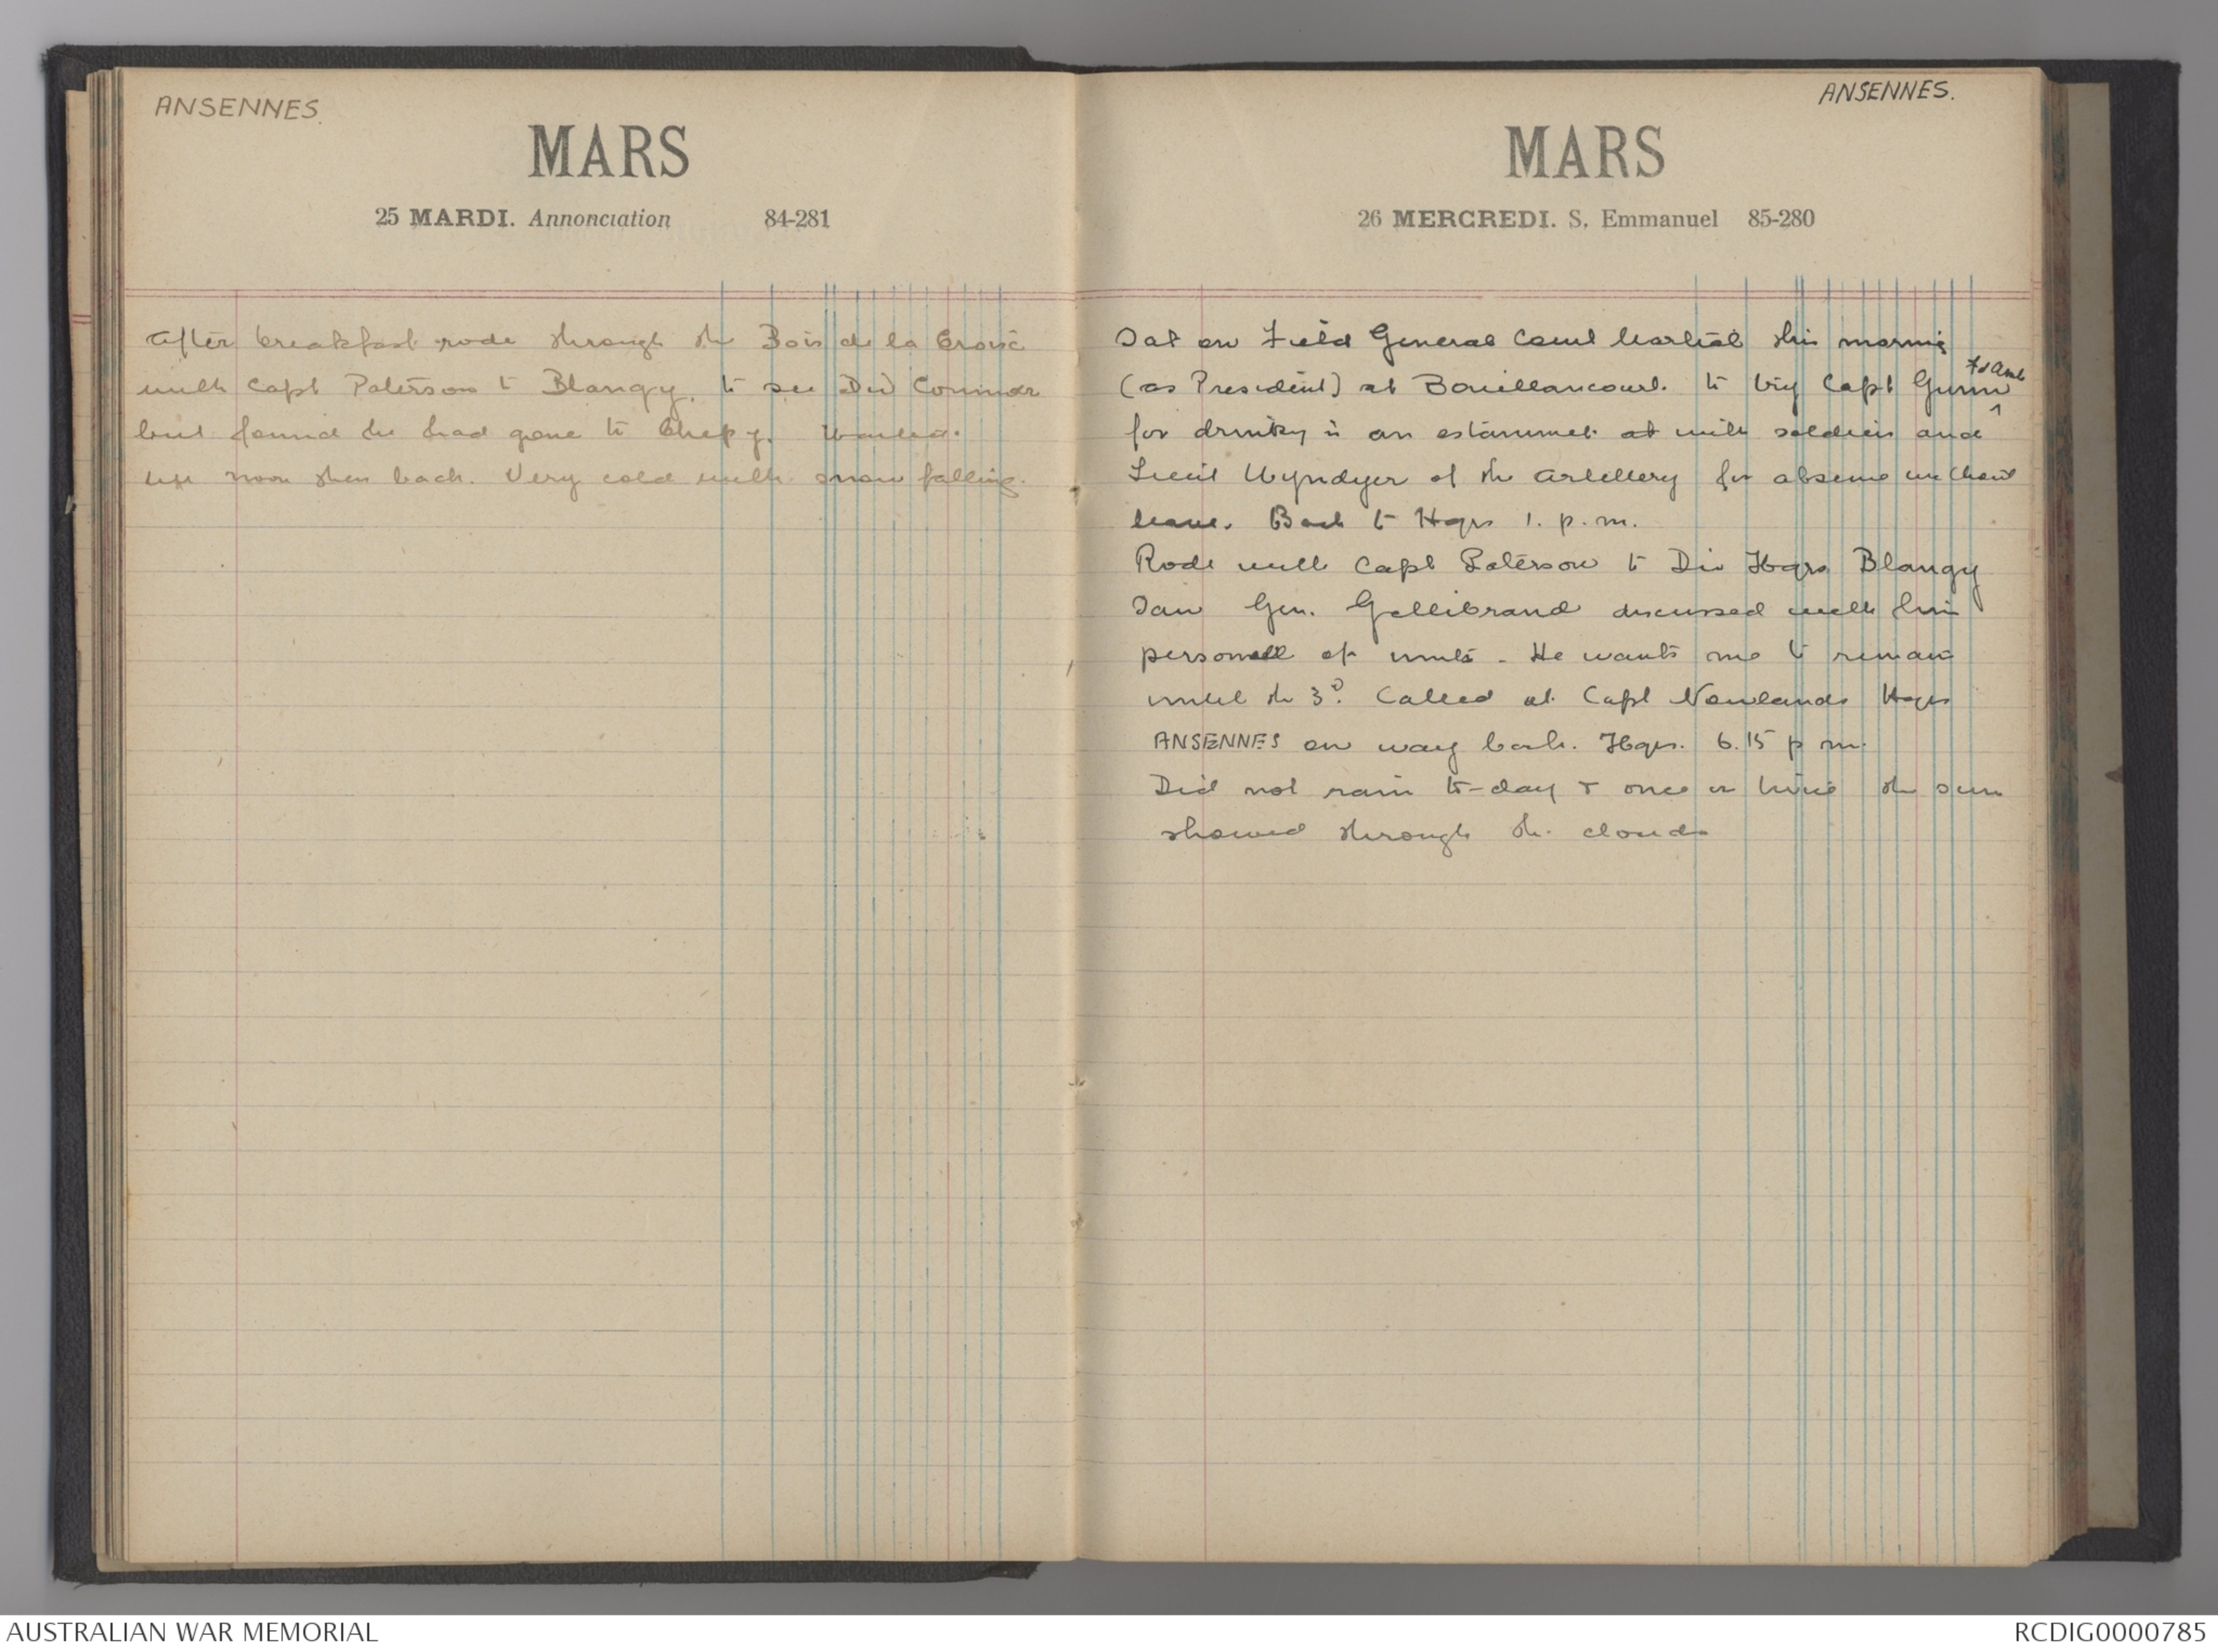 ANSENNES.
MARS
25 MARDI. Annonciation 84-281
After breakfast rode through the Bois de la Croix
with Capt Paterson to Blangy, to see Div Commdr
but found he had gone to Chepy. Waited.
till noon then back. Very cold with snow falling.
ANSENNES.
MARS
26 MERCREDI. S. Emmanuel 85-280
Sat on Field General Court Martial this morning
(as President) at Bouillancourt. to try Capt Gunn ^Fd Amb
for drinking in an estaminet at with soldiers and
Lieut Wyndyer of the Artillery for absence without
leave. Back to Hqrs 1. p.m.
Rode with Capt Paterson to Div Hqrs Blangy
Saw Gen. Gellibrand discussed with him
personell of units - He wants me to remain
until the 3d. Called at Capt Newlands Hqrs
ANSENNES on way back. Hqrs. 6.15 p m.
Did not rain to-day & once or twice the sun
showed through the clouds
AUSTRALIAN WAR MEMORIAL
RCDIG0000785